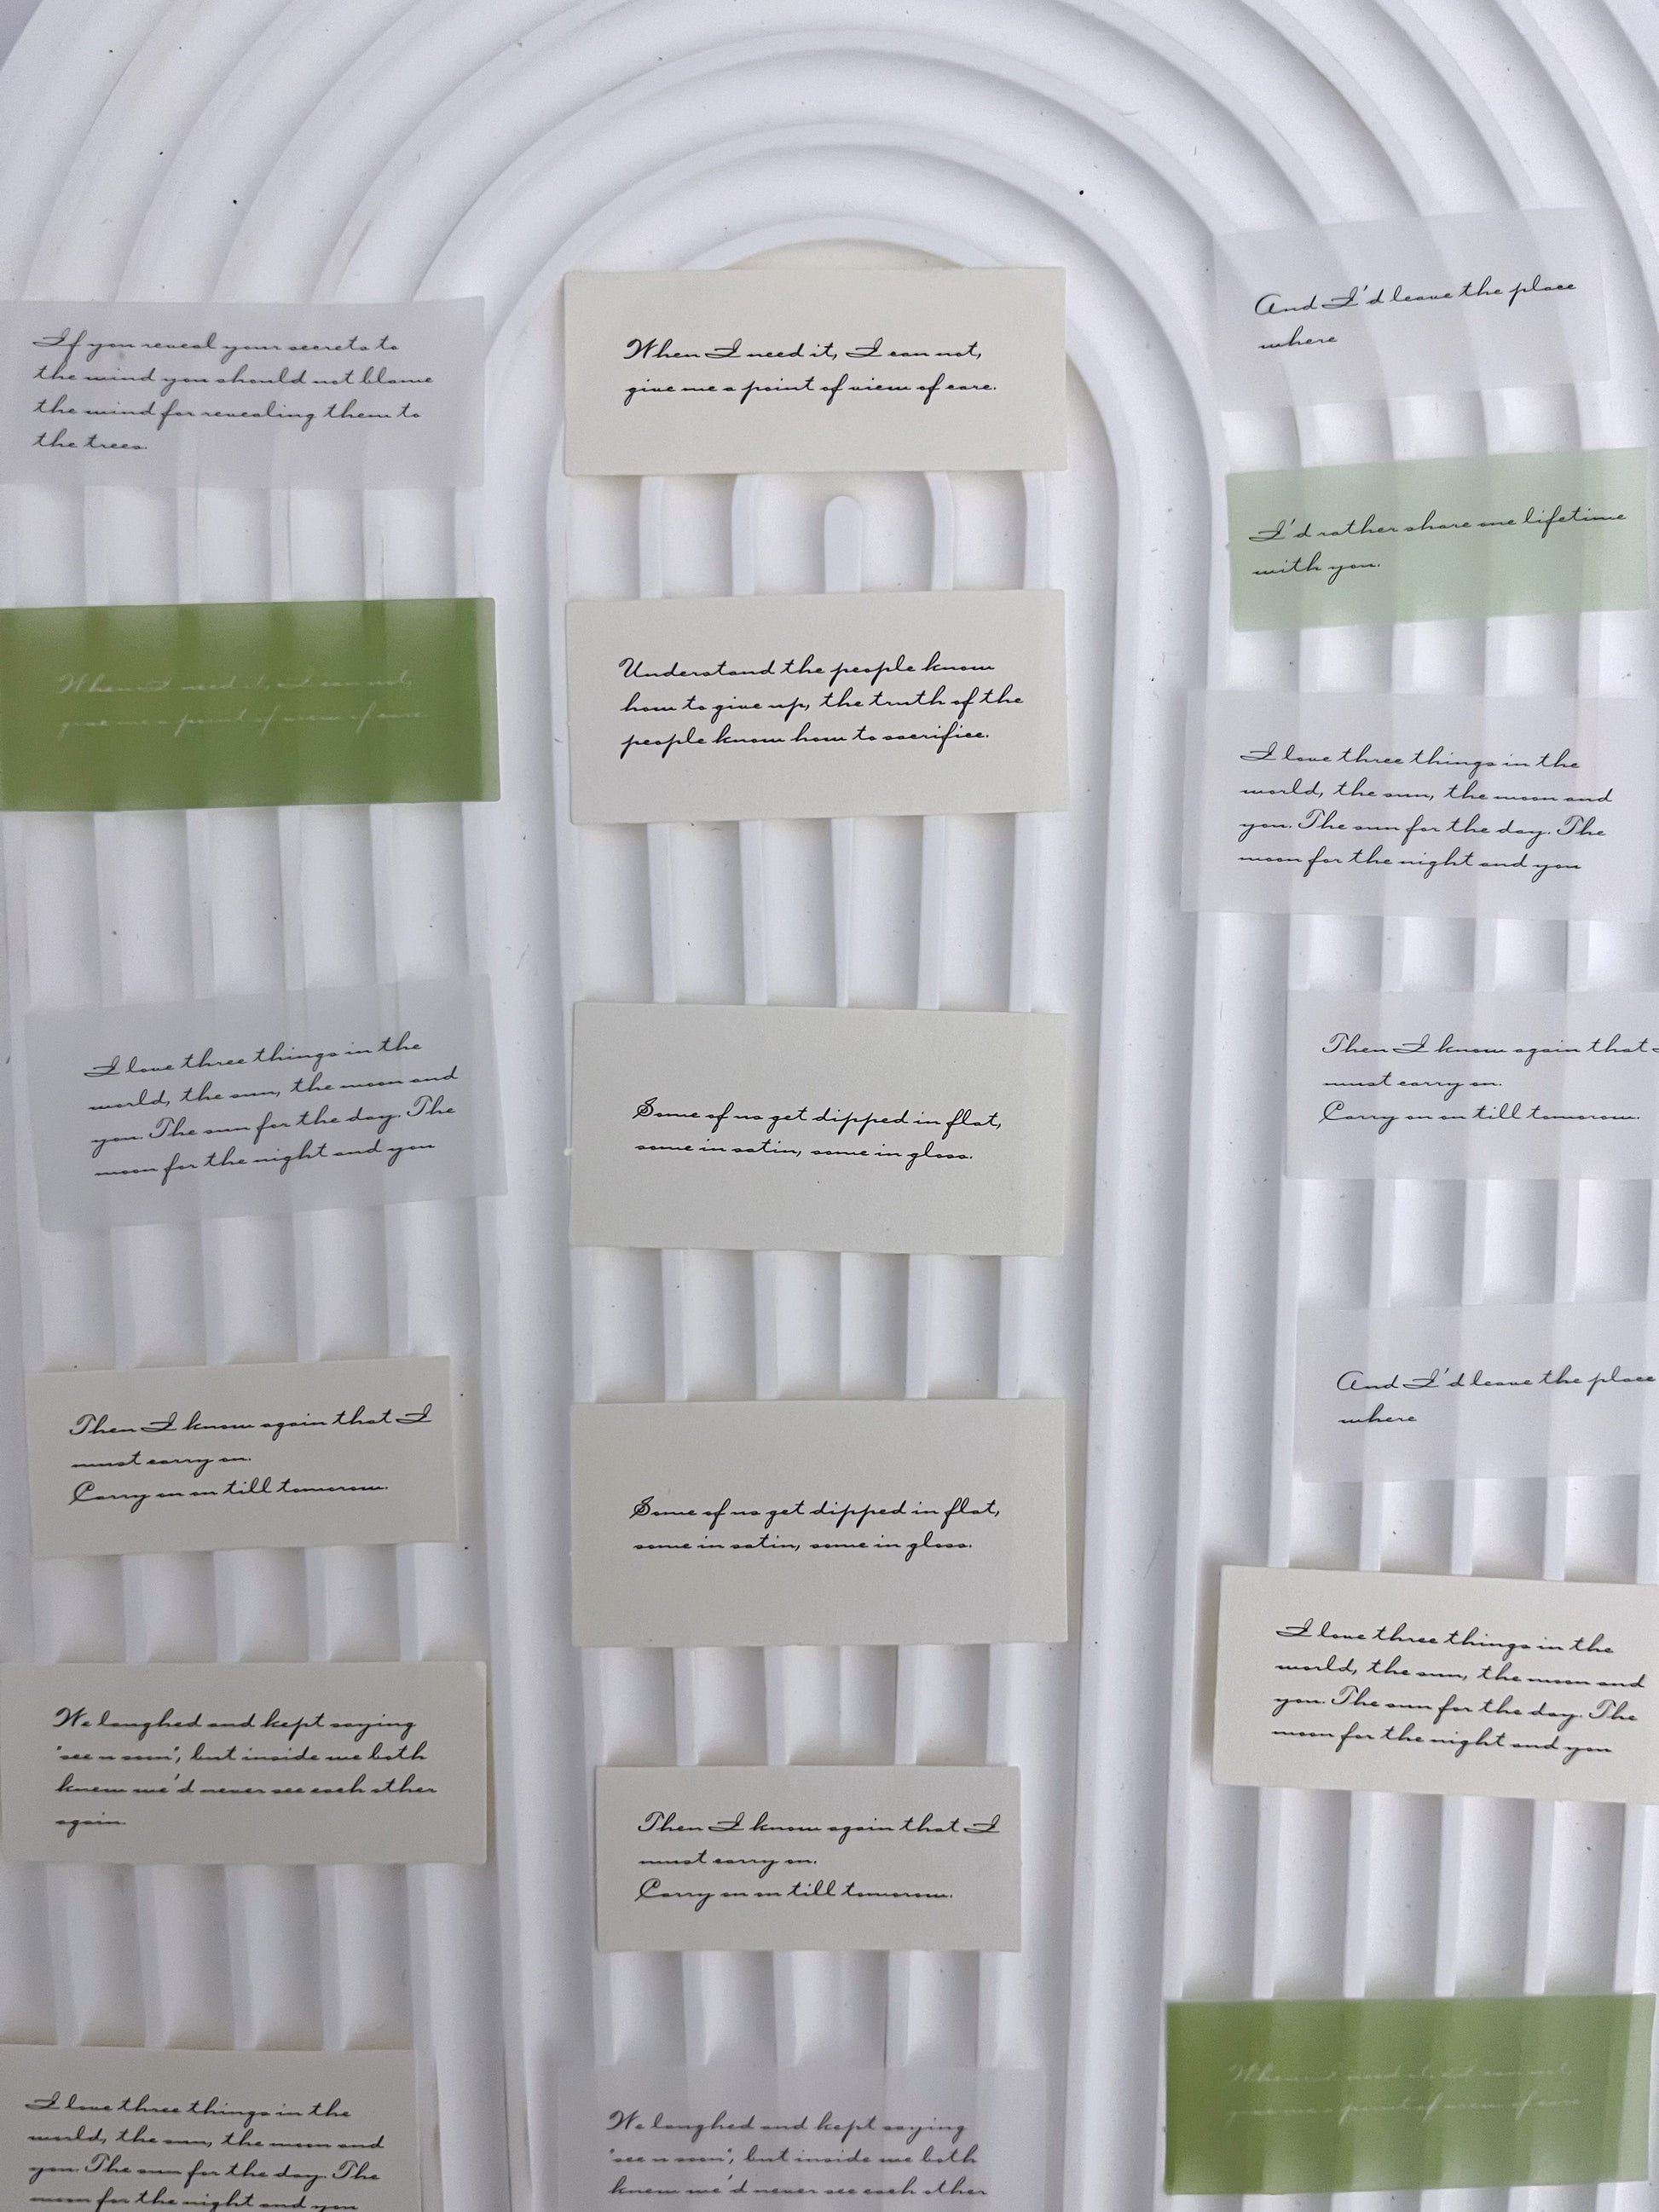 If you reveal your secrets to
the wind you should not blame
the wind for revealing them to
the trees.
When I need it, I can not,
give me a point of view of care
I love three things in the
world, the sun, the moon and
you. The sun for the day. The
moon for the night and you
Then I know again that I
must carry on.
Carry on on till tomorow.
We laughed and kept saying
'see u soon', but inside we both
knew we'd never see each other
again.
I love three things in the
world, the sun, the moon and
you. The sun for the day. The
moon for the night and you
When I need it, I can not,
give me a point of view of care.
Understand the people know
how to give up, the truth of the
people know how to sacrifice.
Some of us get dipped in flat,
some in satin, some in gloss.
Some of us get dipped in flat,
some in satin, some in gloss.
Then I know again that I
must carry on.
Carry on on till tomorow.
We laughed and kept saying
'see u soon', but inside we both
knew we'd never see each other
And I'd leave the place
where
I'd rather share one lifetime
with you.
I love three things in the
world, the sun, the moon and
you. The sun for the day. The
moon for the night and you
Then I know again that
must carry on.
Carry on on till tomorow.
And I'd leave the place
where
I love three things in the
world, the sun, the moon and
you. The sun for the day. The
moon for the night and you
When I need it, I can not,
give me a point of view of care